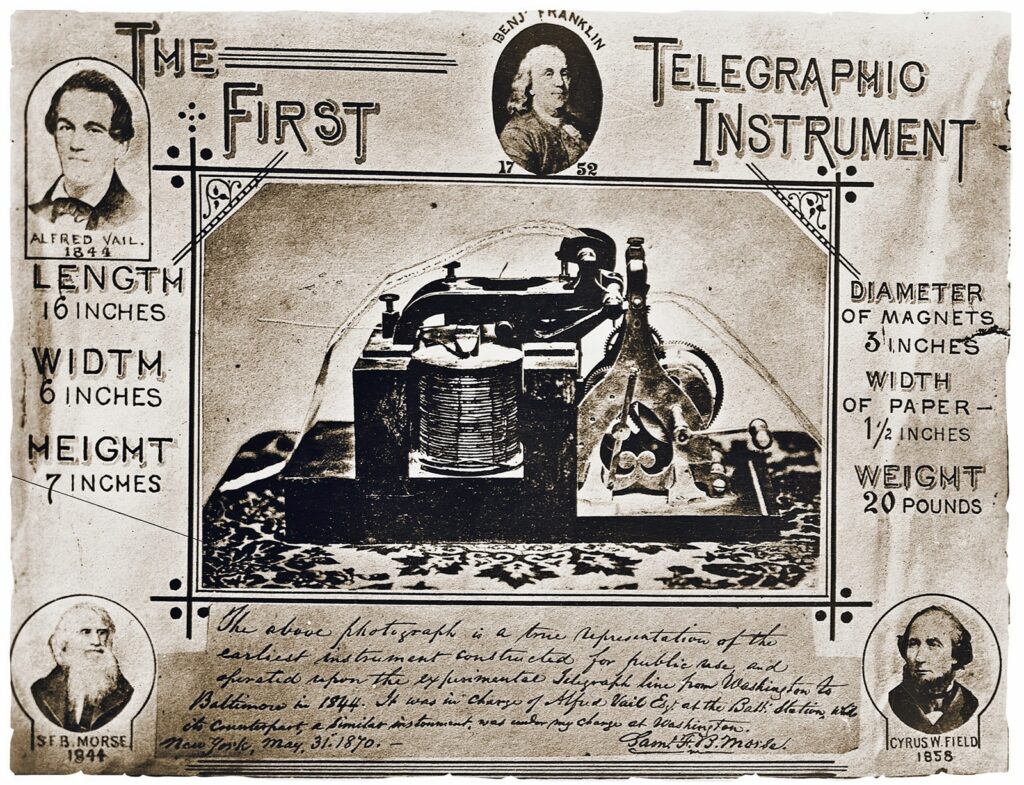 THE
FIRST
BENJ. FRANKLIN
1752
TELEGRAPHIC
INSTRUMENT
ALFRED VAIL.
1844
LENGTH
16 INCHES
WIDTH
6 INCHES
HEIGHT
7 INCHES
DIAMETER
OF MAGNETS
3 INCHES
WIDTH
OF PAPER—
1 1/2 INCHES
WEIGHT
20 POUNDS
The above photograph is a true representation of the
earliest instrument constructed for public use, and
operated upon the experimental Telegraph line from Washington to
Baltimore in 1844. It was in charge of Alfred Vail Esqr at the Balt. Station, while
its counterpart, a similar instrument, was under my charge at Washington.
New York, May, 31. 1870. — Saml. F. B. Morse.
S.F.B. MORSE
1844
CYRUS W. FIELD
1858